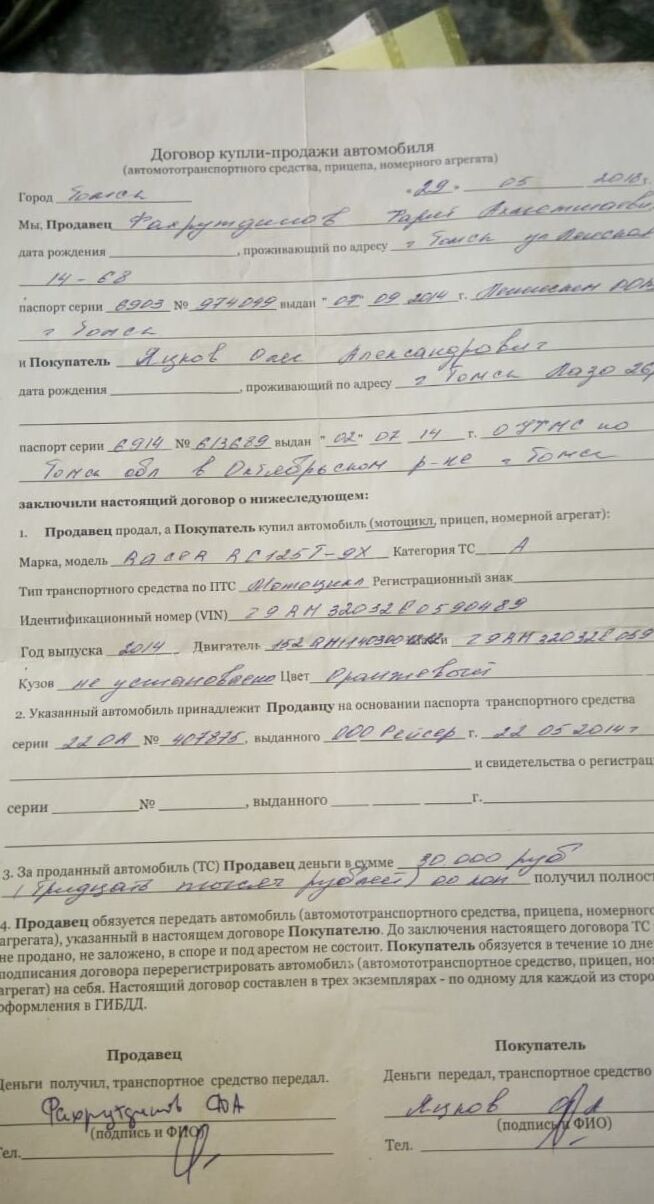 Договор купли-продажи автомобиля
(автомототранспортного средства, прицепа, номерного агрегата)
Город Томск "29" 05 2018г.
Мы, Продавец Фахрутдинов Фарит
дата рождения , проживающий по адресу г Томск ул
14-68
паспорт серии 6903 № 974099 выдан " 09 2014 г.
г Томск
и Покупатель Яцков Олег Александрович
дата рождения , проживающий по адресу г Томск Лазо 26
паспорт серии 6914 № 613689 выдан "02" 07 14 г. ОУФМС по
Томск обл в Октябрьском р-не г Томск
заключили настоящий договор о нижеследующем:
1. Продавец продал, а Покупатель купил автомобиль (мотоцикл, прицеп, номерной агрегат):
Марка, модель RACER RC125T-9X Категория ТС А
Тип транспортного средства по ПТС Мотоцикл Регистрационный знак
Идентификационный номер (VIN)
Год выпуска 2014 Двигатель
Кузов не установлено Цвет Оранжевый
2. Указанный автомобиль принадлежит Продавцу на основании паспорта транспортного средства
серии 22 ОА № 407875, выданного ООО Рейсер г. 22 05 2014г
и свидетельства о регистрац
серии № , выданного г.
3. За проданный автомобиль (ТС) Продавец деньги в сумме 30.000 руб
(Тридцать тысяч рублей) 00 коп получил полност
4. Продавец обязуется передать автомобиль (автомототранспортного средства, прицепа, номерного
агрегата), указанный в настоящем договоре Покупателю. До заключения настоящего договора ТС
не продано, не заложено, в споре и под арестом не состоит. Покупатель обязуется в течение 10 дне
подписания договора перерегистрировать автомобиль (автомототранспортное средство, прицеп, ном
агрегат) на себя. Настоящий договор составлен в трех экземплярах - по одному для каждой из сторо
оформления в ГИБДД.
Продавец Покупатель
Деньги получил, транспортное средство передал. Деньги передал, транспортное средство
Фахрутдинов ФА Яцков
(подпись и ФИО) (подпись и ФИО)
Тел. Тел.